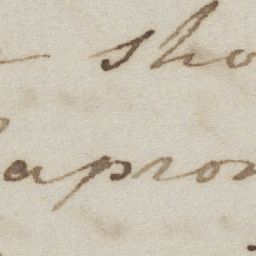 sho
apron